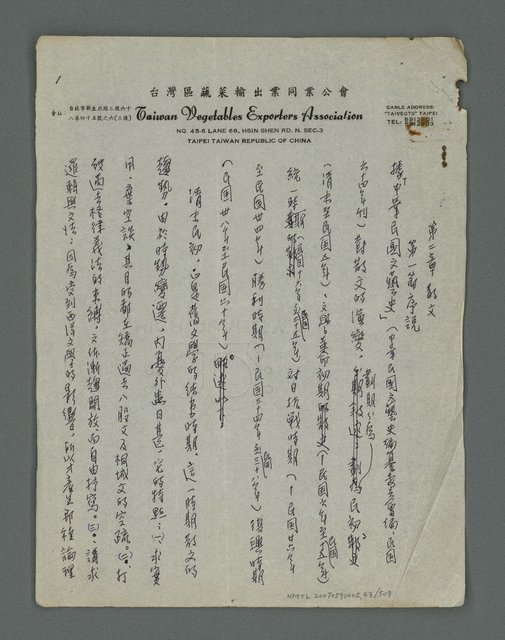 台灣區蔬菜輸出業同業公會
Taiwan Vegetables Exporters Association
會址：台北市新生北路三段六十八巷四十五號之六(三樓)
NO. 45-6 LANE 68, HSIN SHEN RD. N. SEC-3
TAIPEI TAIWAN REPUBLIC OF CHINA
CABLE ADDRESS
"TAIVEGTS" TAIPEI
TEL:
第二章 散文
第一節 序說
據「中華民國文藝史」（中華民國文藝史編纂委員會編，民國
六四年刊）對散文的演變，劃期分為民初
（清末至民國五年）、文學革命初期（民國六年至十五年）
統一時期（民國十六年至二十五年）對日抗戰時期（民國廿六年
至民國卅四年）勝利時期（民國三十四年至三十八年）復興時期
（民國卅八年至民國六十年）。
清末民初，正是舊文學的結束時期，這一時期散文的
趨勢，由於時勢變遷，內憂外患日甚，它的特點：㈠求實
用，棄空談。其目的都在矯正過去八股文及桐城文的空疏。㈡打
破過去格律義法的束縛，文体漸趨開放，而自由抒寫。㈢講求
邏輯與文法，因為受到西洋文學的影響，所以才產生那種論理
NMTL 20070590002, 43/509